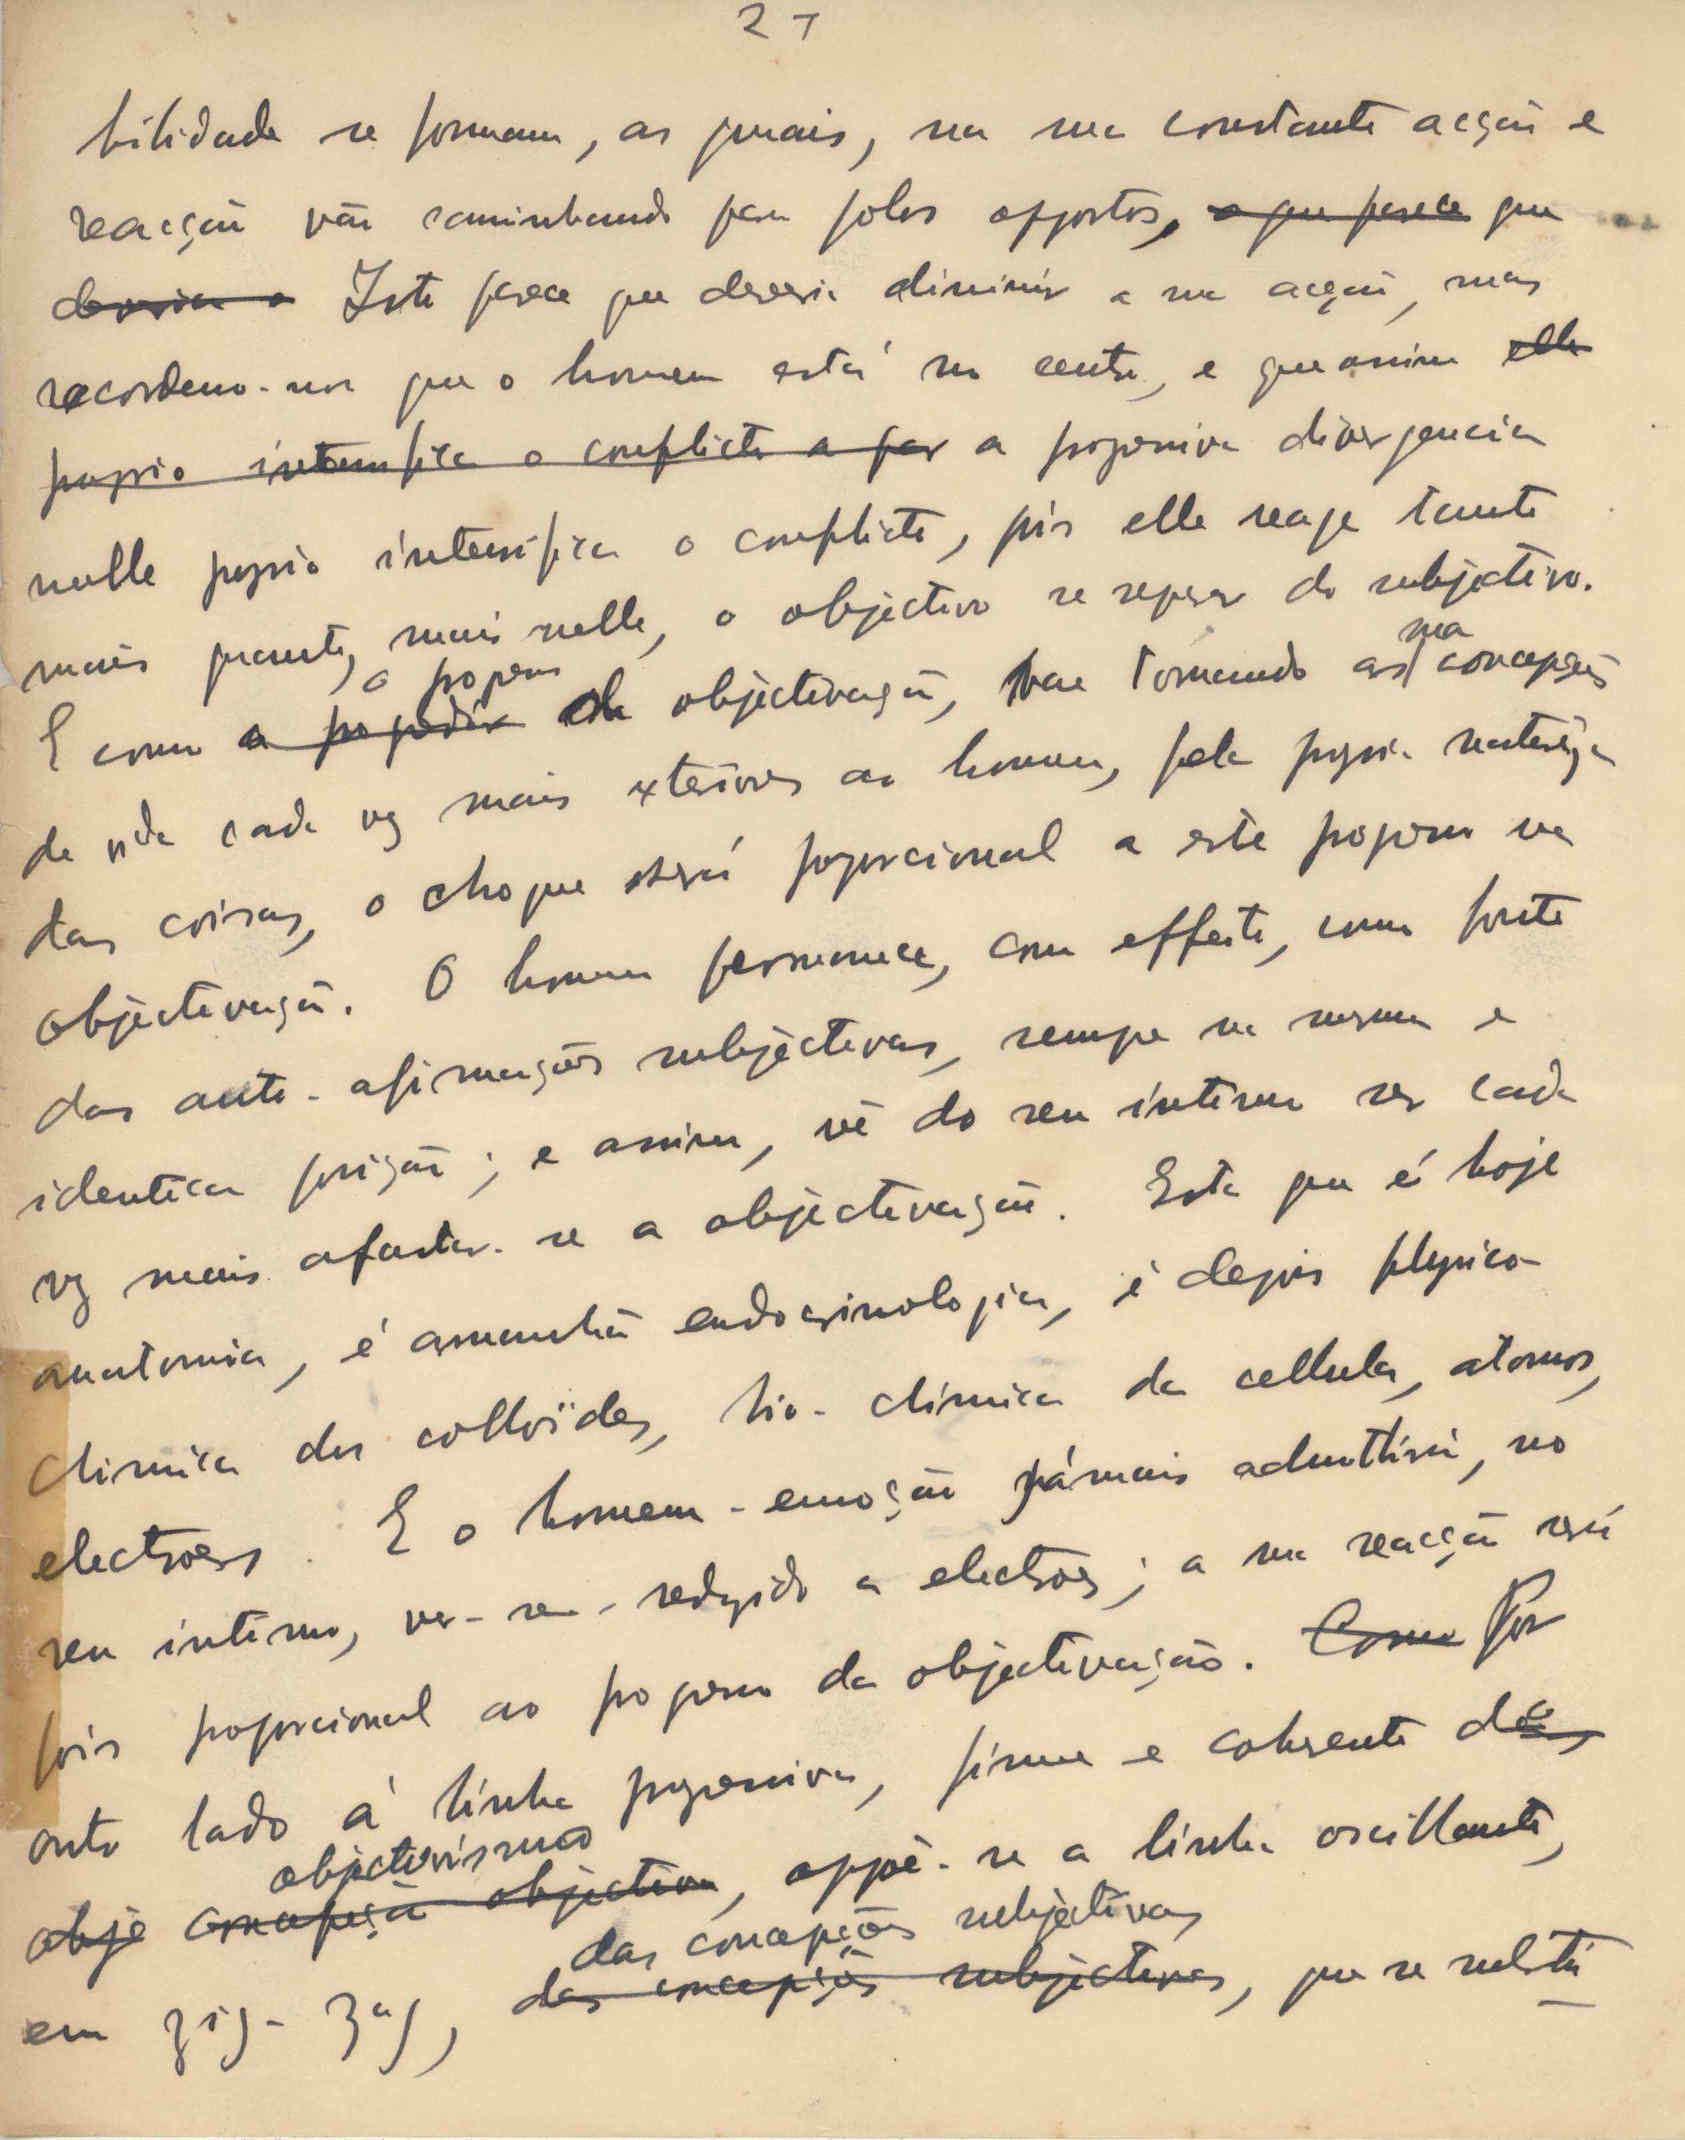 27
bilidade se formam, as quais, na sua constante acção e
reacção vão caminhando para polos oppostos, o que parece que
deveria a Isto parece que deveria diminuir a sua acção, mas
recordemo-nos que o homem está no centro, e que assim elle
proprio intensifica o conflicto a par a progressiva divergencia
nelle proprio intensifica o conflicto, pois elle reage tanto
mais quanto, mais nelle, o objectivo se separa do subjectivo.
E como a o progresso da objectivação, vae tornando as sua concepções
da vida cada vez mais exteriores ao homem, pela propria natureza
das coisas, o choque será proporcional a este progresso na
objectivação. O homem permanece, com effeito, como fonte
das auto-afirmações subjectivas, sempre na mesma e
identica posição; e assim, vê do seu intimo ser cada
vez mais afastar-se a objectivação. Esta que é hoje
anatomia, é amanhã endocrinologia, é depois physico-
chimica dos colloïdes, bio-chimica da cellula, atomos,
electroes. E o homem-emoção jámais admittirá, no
seu intimo, ver-se-redusido a electroes; a sua reacção será
pois proporcional ao progresso da objectivação. Como Por
outro lado á linha progressiva, firme e coherente do
obje concepção objectiva objectivismo, oppõe-se a linha oscillante,
em zig-zag, das concepções subjectivas das concepções subjectivas, que se substi